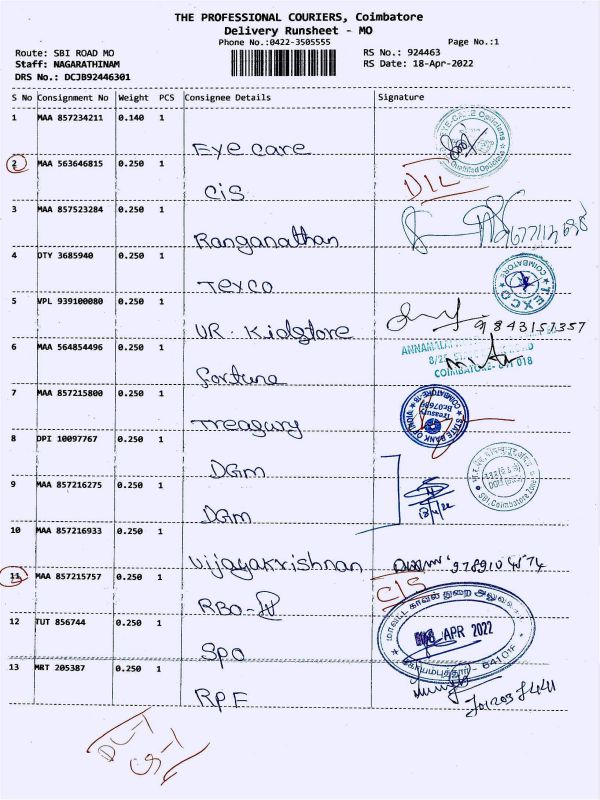 THE PROFESSIONAL COURIERS, Coimbatore
Delivery Runsheet - MO
Phone No.:0422-3505555 Page No.:1
Route: SBI ROAD MO RS No.: 924463
Staff: NAGARATHINAM RS Date: 18-Apr-2022
DRS No.: DCJB92446301
S No Consignment No Weight PCS Consignee Details Signature
1 MAA 857234211 0.140 1
Eye care
2 MAA 563646815 0.250 1
CIS
3 MAA 857523284 0.250 1
Ranganathan
4 DTY 3685940 0.250 1
TEXCO COIMBATORE
Texco
5 VPL 939100080 0.250 1
UR. Kidstore 9843151357
6 MAA 564854496 0.250 1
COIMBATORE- 641 018
fortune
7 MAA 857215800 0.250 1
STATE BANK OF INDIA Treasury COIMBATORE-18
Treasury
8 DPI 10097767 0.250 1
DGM
9 MAA 857216275 0.250 1
SBI, Coimbatore Zone
DGM
10 MAA 857216933 0.250 1
Vijayakrishnan
11 MAA 857215757 0.250 1
CIS
RBO-
12 TUT 856744 0.250 1
APR 2022
SPO
13 MRT 205387 0.250 1
RPF